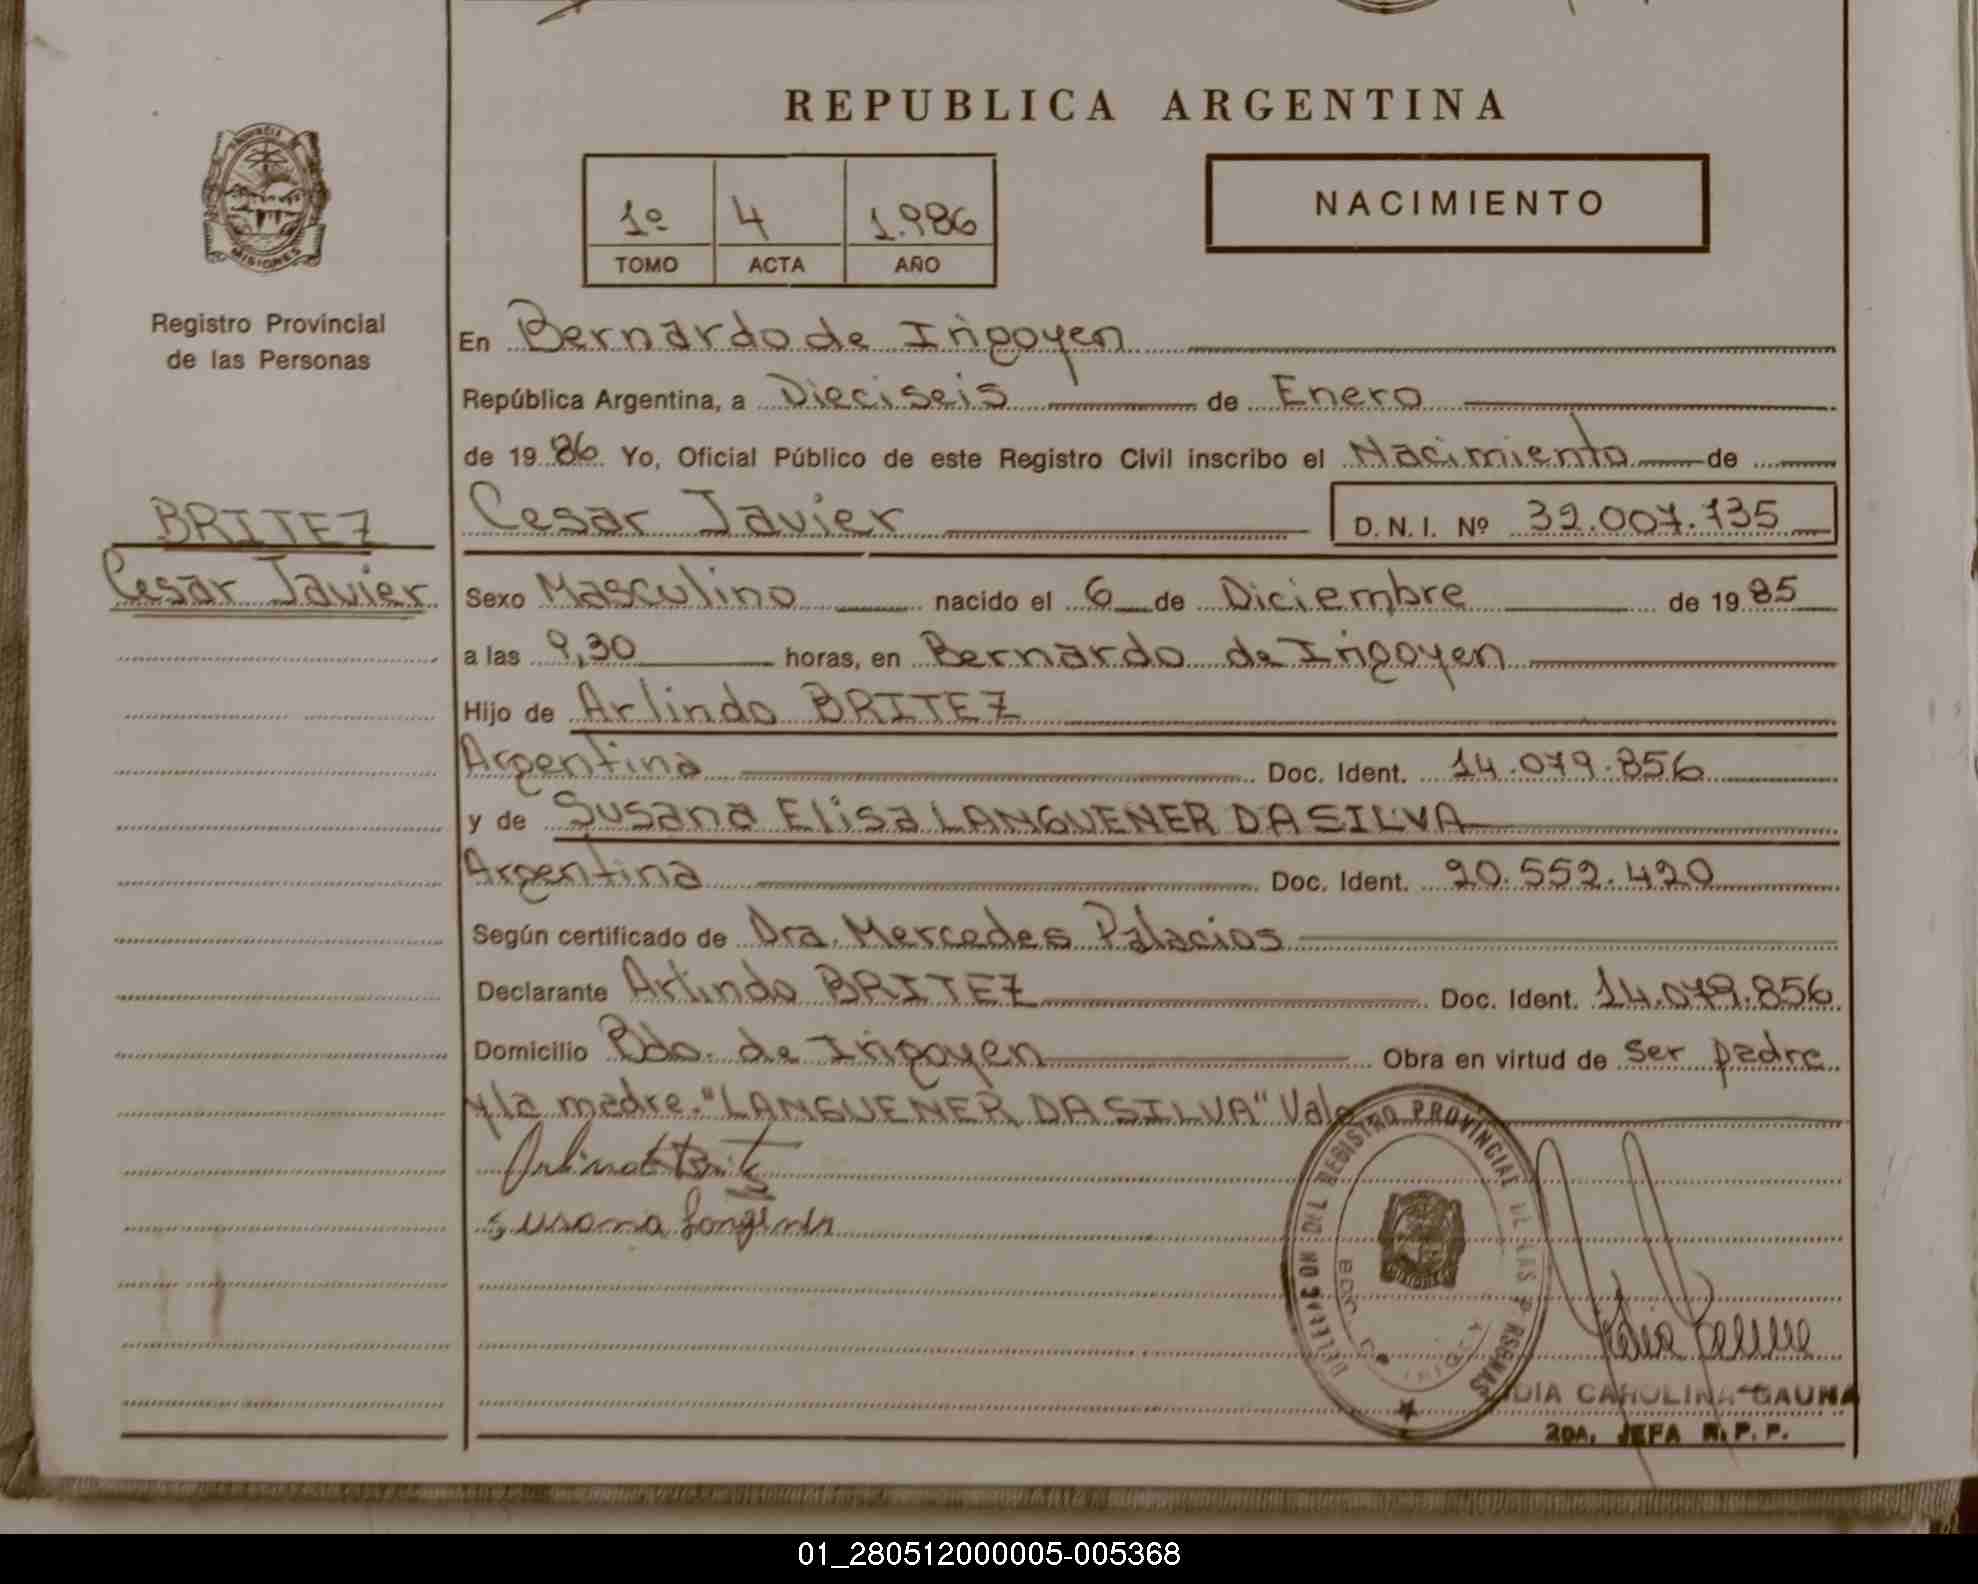 REPUBLICA ARGENTINA
PROVINCIA
MISIONES
1º 4 1.986
TOMO ACTA AÑO
NACIMIENTO
Registro Provincial
de las Personas
BRITEZ
Cesar Javier
En Bernardo de Irigoyen
República Argentina, a Dieciseis de Enero
de 1986 Yo, Oficial Público de este Registro Civil inscribo el Nacimiento de
Cesar Javier D.N.I. Nº 32.007.135
Sexo Masculino nacido el 6 de Diciembre de 1985
a las 9,30 horas, en Bernardo de Irigoyen
Hijo de Arlindo BRITEZ
Argentina Doc. Ident. 14.079.856
y de Susana Elisa LANGUENER DA SILVA
Argentina Doc. Ident. 20.552.420
Según certificado de Dra. Mercedes Palacios
Declarante Arlindo BRITEZ Doc. Ident. 14.079.856
Domicilio Bdo. de Irigoyen Obra en virtud de ser padre
y la madre. "LANGUENER DA SILVA" Vale
DEL REGISTRO PROVINCIAL DE LAS PERSONAS
MISIONES
Susana
CAROLINA GAUNA
JEFA R.P.P.
01_280512000005-005368